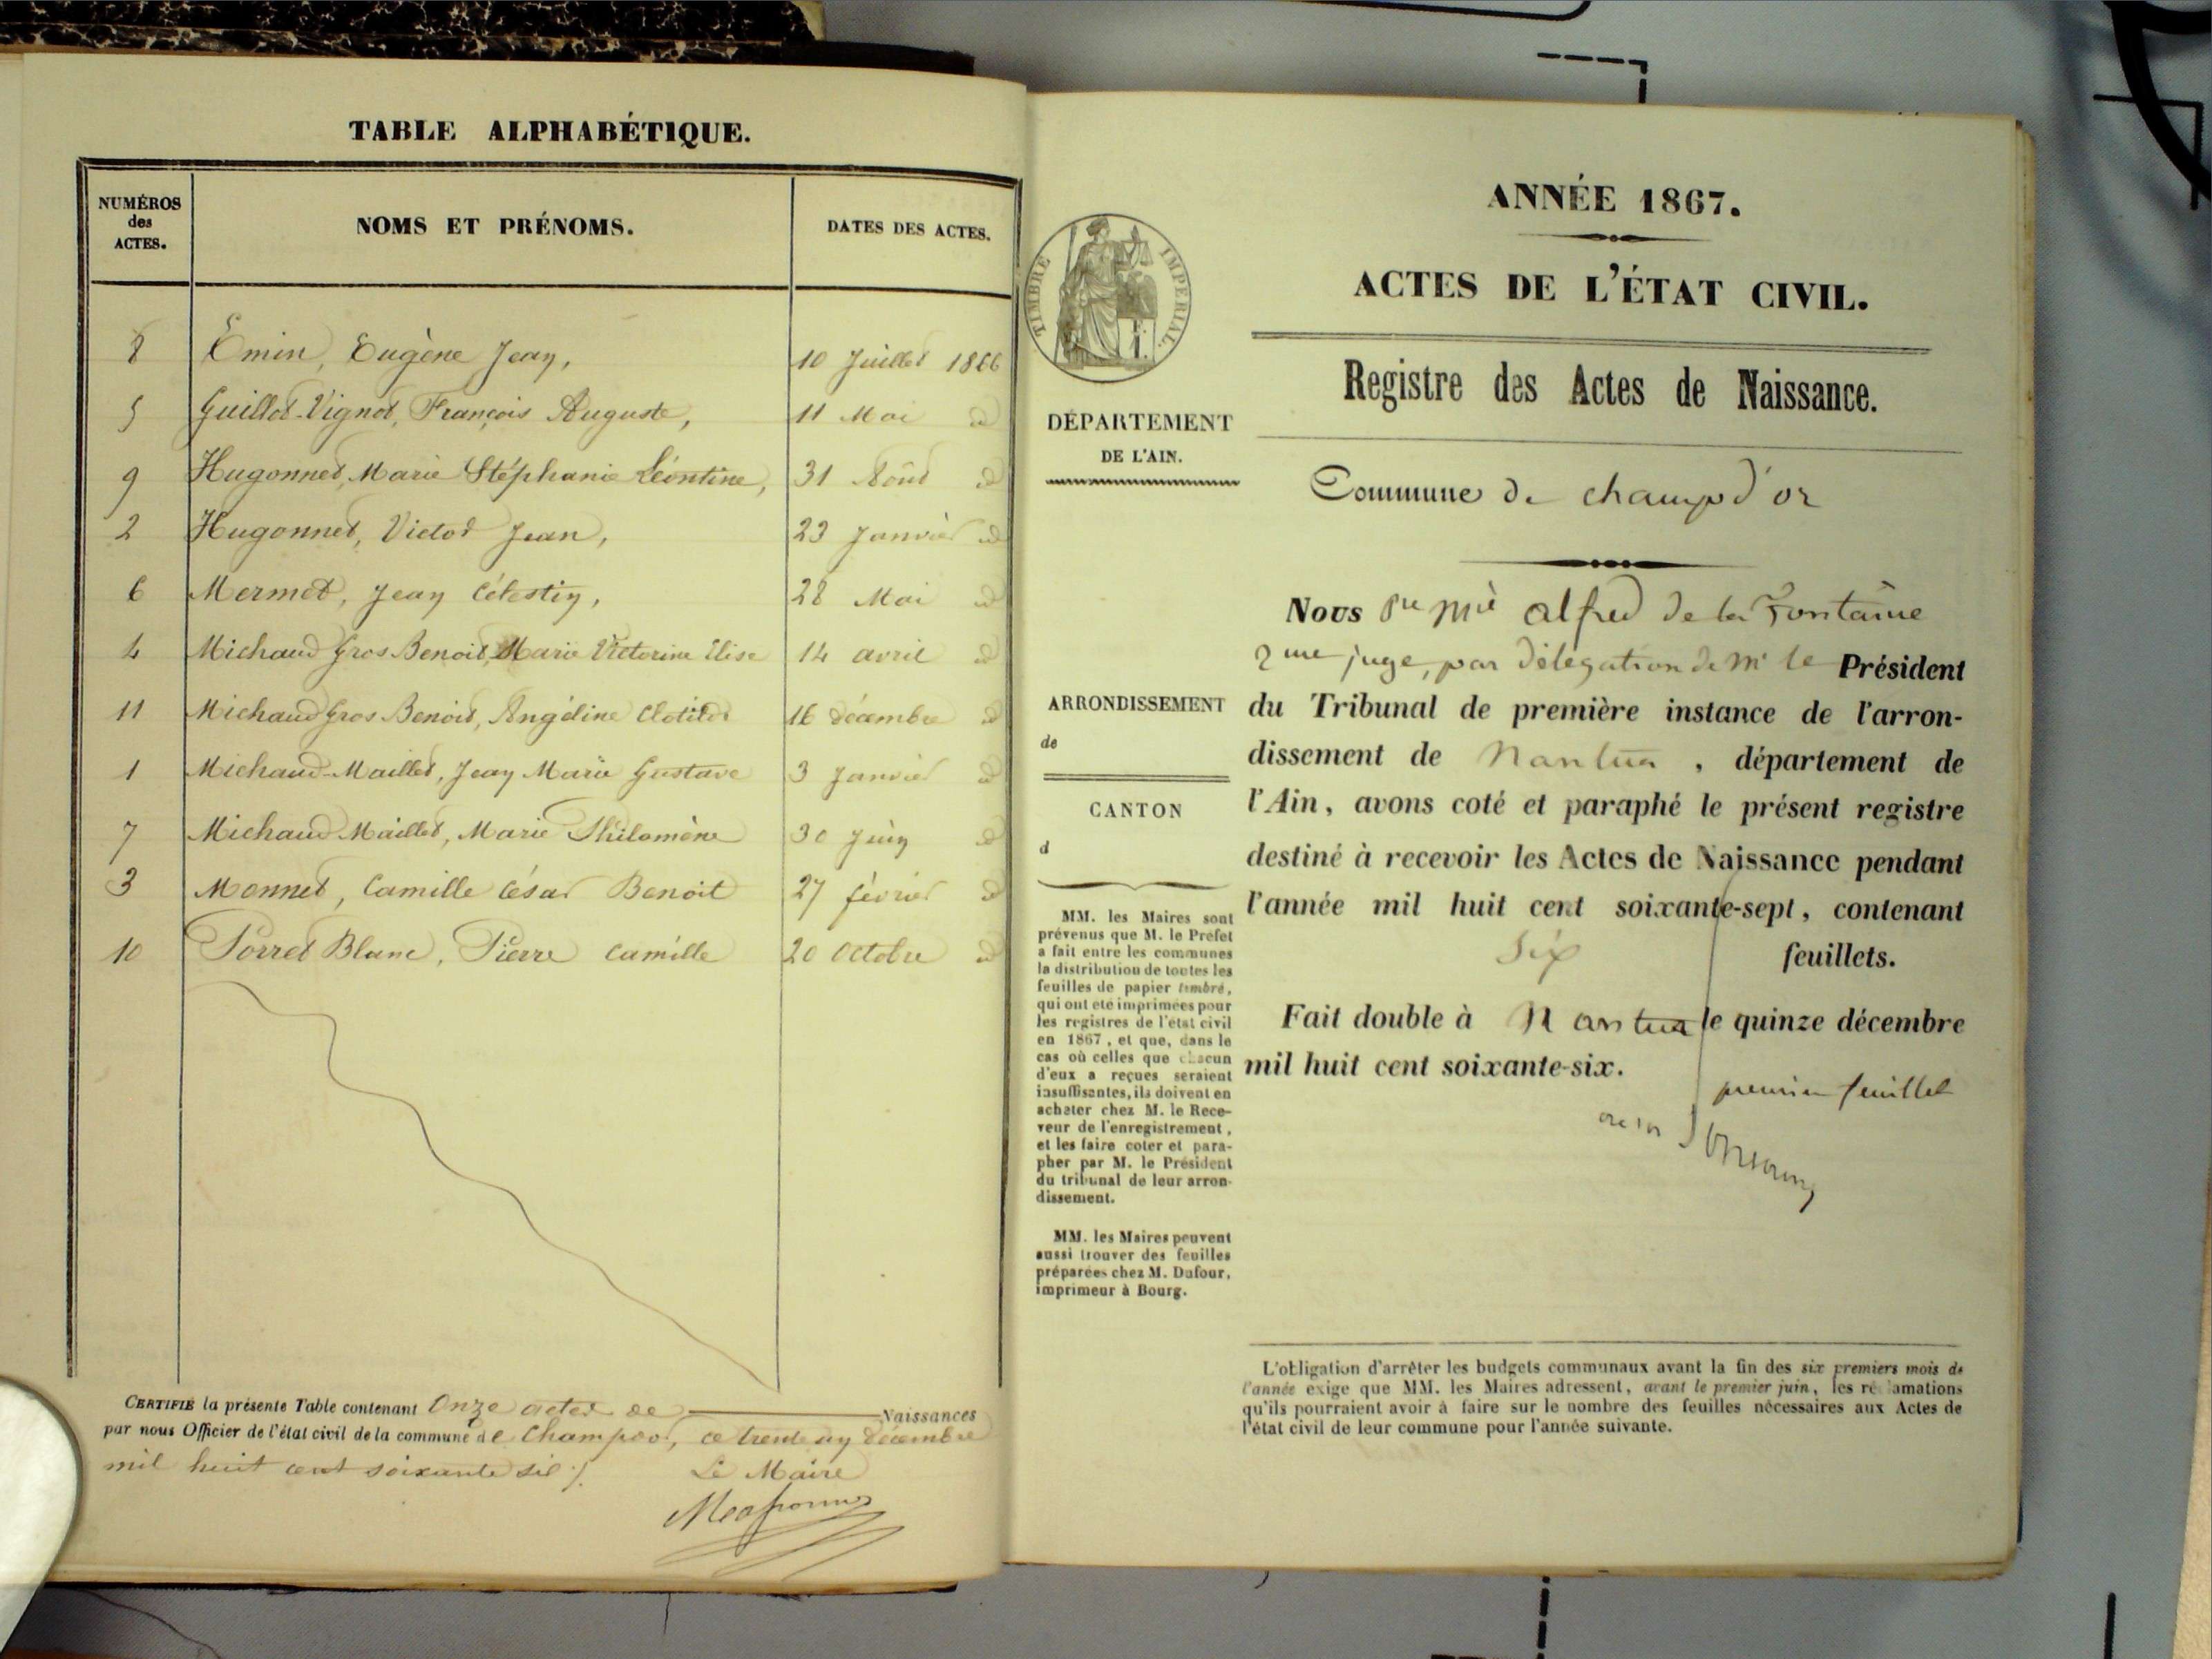 TABLE ALPHABÉTIQUE.
NUMÉROS
des
ACTES.
NOMS ET PRÉNOMS.
DATES DES ACTES.
8 Emin, Eugène Jean, 10 Juillet 1866
5 Guillot-Vignot, François Auguste, 11 Mai id
9 Hugonnet, Marie Stéphanie Léontine, 31 Août id
2 Hugonnet, Victor Jean, 23 Janvier id
6 Mermet, Jean Célestin, 28 Mai id
4 Michaud Gros Benoit, Marie Victorine Elise 14 avril id
11 Michaud Gros Benoit, Angéline Clotilde 16 décembre id
1 Michaud-Maillet, Jean Marie Gustave 3 Janvier id
7 Michaud Maillet, Marie Philomène 30 Juin id
3 Monnet, Camille César Benoit 27 février id
10 Porret Blanc, Pierre Camille 20 Octobre id
CERTIFIÉ la présente Table contenant Onze actes de Naissances
par nous Officier de l'état civil de la commune de Champdor, ce trente un décembre
mil huit cent soixante six ./.
Le Maire
TIMBRE IMPÉRIAL.
DÉPARTEMENT
DE L'AIN.
ARRONDISSEMENT
de
CANTON
d
MM. les Maires sont
prévenus que M. le Préfet
a fait entre les communes
la distribution de toutes les
feuilles de papier timbré,
qui ont été imprimées pour
les registres de l'état civil
en 1867, et que, dans le
cas où celles que chacun
d'eux a reçues seraient
insuffisantes, ils doivent en
acheter chez M. le Rece-
veur de l'enregistrement,
et les faire coter et para-
pher par M. le Président
du tribunal de leur arron-
dissement.
MM. les Maires peuvent
aussi trouver des feuilles
préparées chez M. Dufour,
imprimeur à Bourg.
ANNÉE 1867.
ACTES DE L'ÉTAT CIVIL.
Registre des Actes de Naissance.
Commune de champd'or
Nous Pre Mie alfred de la Fontaine
2me juge, par délégation de Mr le Président
du Tribunal de première instance de l'arron-
dissement de Nantua, département de
l'Ain, avons coté et paraphé le présent registre
destiné à recevoir les Actes de Naissance pendant
l'année mil huit cent soixante-sept, contenant
Six feuillets.
Fait double à Nantua le quinze décembre
mil huit cent soixante-six.
premier feuillet
L'obligation d'arrêter les budgets communaux avant la fin des six premiers mois de
l'année exige que MM. les Maires adressent, avant le premier juin, les réclamations
qu'ils pourraient avoir à faire sur le nombre des feuilles nécessaires aux Actes de
l'état civil de leur commune pour l'année suivante.